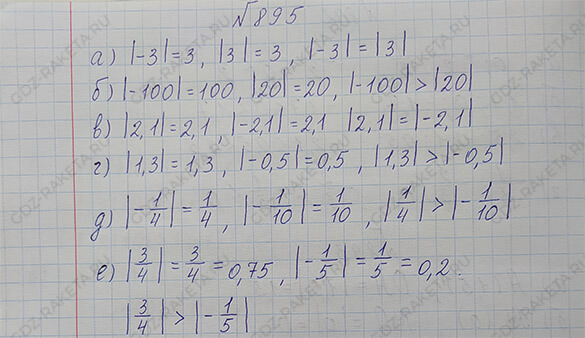 №895
а) |-3|=3, |3|=3, |-3|=|3|
б) |-100|=100, |20|=20, |-100|>|20|
в) |2,1|=2,1, |-2,1|=2,1 |2,1|=|-2,1|
г) |1,3|=1,3, |-0,5|=0,5, |1,3|>|-0,5|
д) |-1/4|=1/4, |-1/10|=1/10, |1/4|>|-1/10|
е) |3/4|=3/4=0,75, |-1/5|=1/5=0,2.
|3/4|>|-1/5|
GDZ-RAKETA.RU